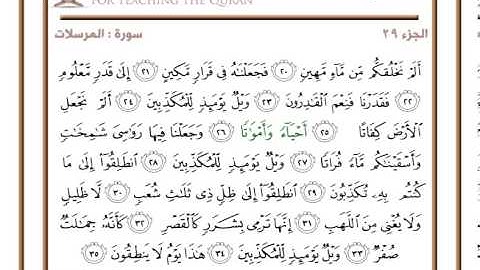 FOR TEACHING THE QURAN
الجزء ٢٩
سورة : المرسلات
أَلَمْ نَخْلُقكُّم مِّن مَّآءٍ مَّهِينٍ ٢٠ فَجَعَلْنَٰهُ فِى قَرَارٍ مَّكِينٍ ٢١ إِلَىٰ قَدَرٍ مَّعْلُومٍ
٢٢ فَقَدَرْنَا فَنِعْمَ ٱلْقَٰدِرُونَ ٢٣ وَيْلٌ يَوْمَئِذٍ لِّلْمُكَذِّبِينَ ٢٤ أَلَمْ نَجْعَلِ
ٱلْأَرْضَ كِفَاتًا ٢٥ أَحْيَآءً وَأَمْوَٰتًا ٢٦ وَجَعَلْنَا فِيهَا رَوَٰسِىَ شَٰمِخَٰتٍ
وَأَسْقَيْنَٰكُم مَّآءً فُرَاتًا ٢٧ وَيْلٌ يَوْمَئِذٍ لِّلْمُكَذِّبِينَ ٢٨ ٱنطَلِقُوٓا۟ إِلَىٰ مَا
كُنتُم بِهِۦ تُكَذِّبُونَ ٢٩ ٱنطَلِقُوٓا۟ إِلَىٰ ظِلٍّ ذِى ثَلَٰثِ شُعَبٍ ٣٠ لَّا ظَلِيلٍ
وَلَا يُغْنِى مِنَ ٱللَّهَبِ ٣١ إِنَّهَا تَرْمِى بِشَرَرٍ كَٱلْقَصْرِ ٣٢ كَأَنَّهُۥ جِمَٰلَتٌ
صُفْرٌ ٣٣ وَيْلٌ يَوْمَئِذٍ لِّلْمُكَذِّبِينَ ٣٤ هَٰذَا يَوْمُ لَا يَنطِقُونَ ٣٥